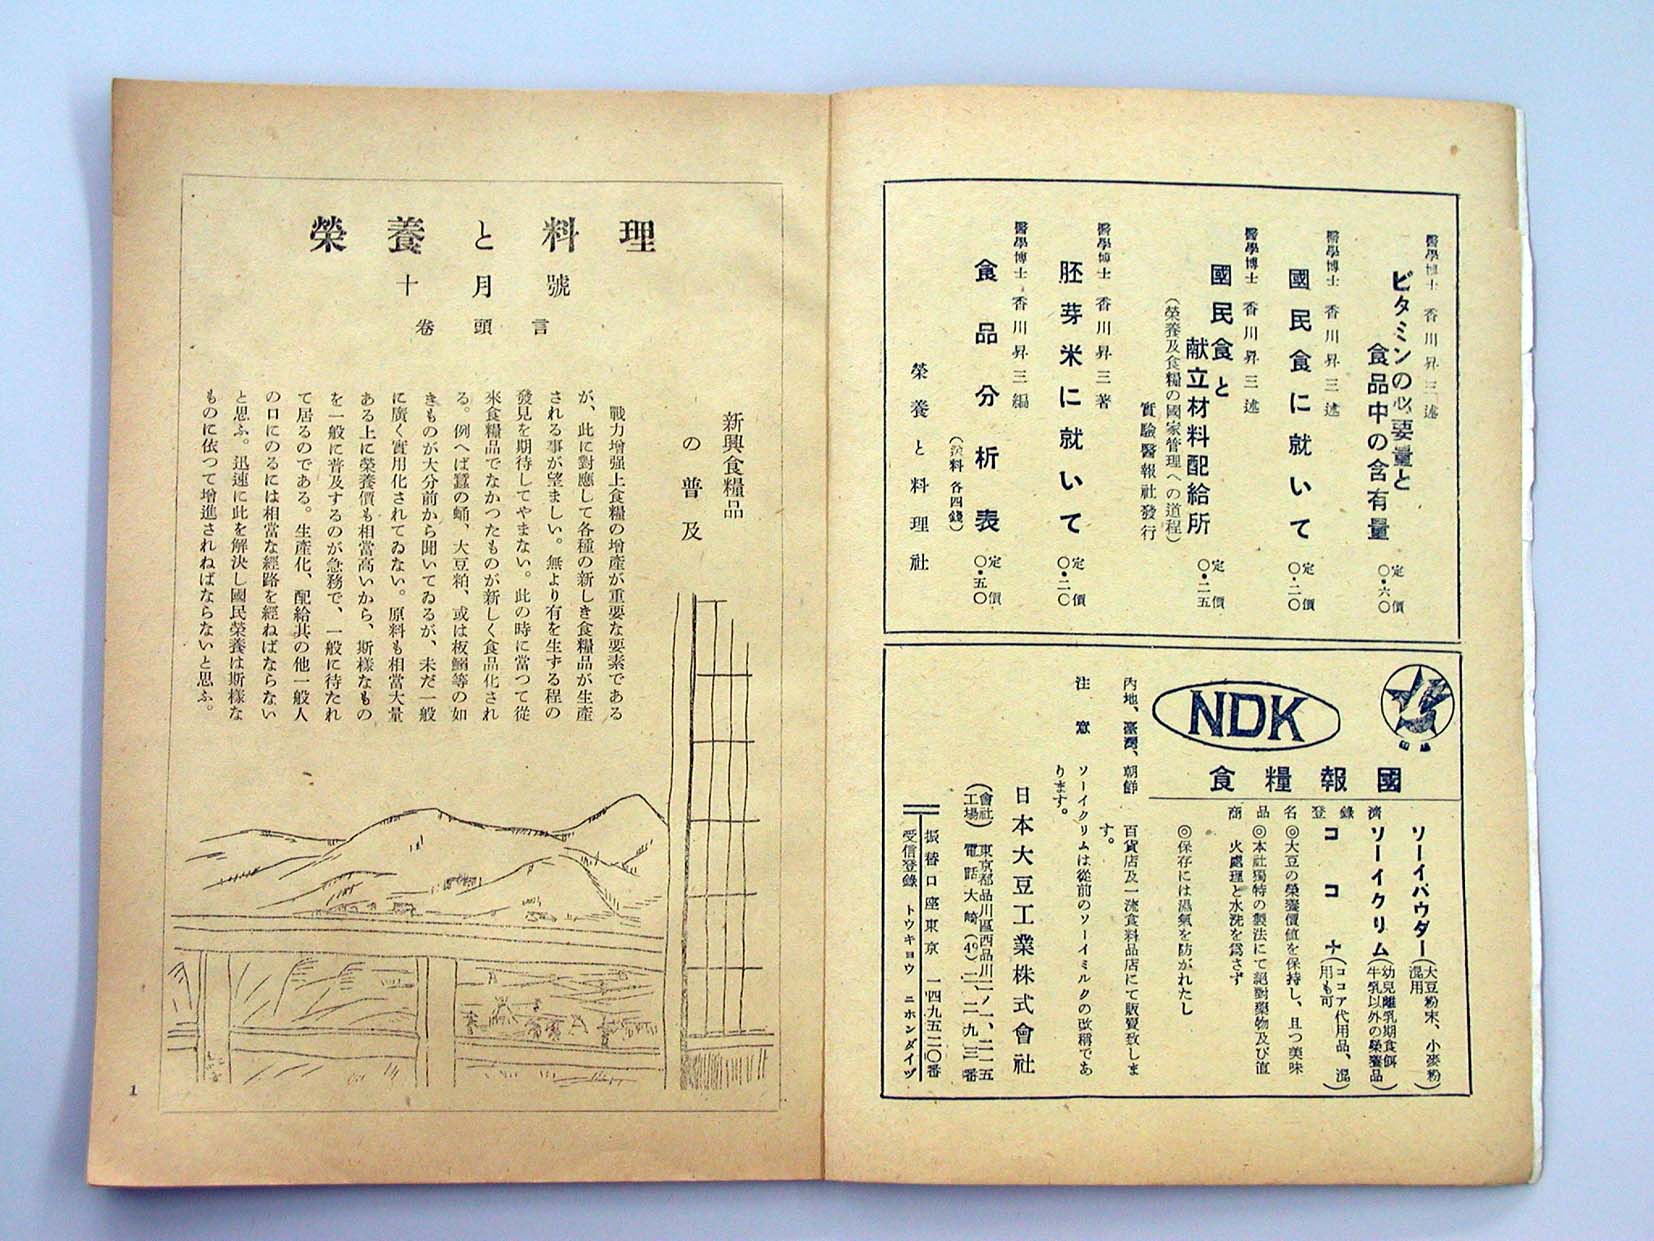 醫學博士 香川昇三述
ビタミンの必要量と
食品中の含有量
定價 〇・六〇
醫學博士 香川昇三述
國民食に就いて
定價 〇・二〇
醫學博士 香川昇三述
國民食と
献立材料配給所
定價 〇・二五
(榮養及食糧の國家管理への道程)
實驗醫報社發行
醫學博士 香川昇三著
胚芽米に就いて
定價 〇・二〇
醫學博士 香川昇三編
食品分析表
定價 〇・五〇
(送料 各四錢)
榮養と料理社
NDK
國報糧食
商品名登錄濟
ソーイパウダー(大豆粉末、小麥粉混用)
ソーイクリム(幼兒離乳期食餌 牛乳以外の榮養品)
ココナ(ココア代用品、混用も可)
◎大豆の榮養價値を保持し、且つ美味
◎本社獨特の製法にて絕對藥物及び直
火處理と水洗を爲さず
◎保存には濕氣を防がれたし
內地、臺灣、朝鮮 百貨店及一流食料品店にて販賣致しま
す。
注意 ソーイクリムは從前のソーイミルクの改稱であ
ります。
日本大豆工業株式會社
(會社 工場) 東京都品川區西品川二ノ一、二一五
電話大崎(49)二、二九三番
振替口座東京 一四九五二〇番
受信登錄 トウキョウ ニホンダイヅ
榮養と料理
十月號
卷頭言
新興食糧品
の普及
戰力增强上食糧の增產が重要な要素である
が、此に對應して各種の新しき食糧品が生產
される事が望ましい。無より有を生ずる程の
發見を期待してやまない。此の時に當つて從
來食糧品でなかつたものが新しく食品化され
る。例へば蠶の蛹、大豆粕、或は板鰮等の如
きものが大分前から聞いてゐるが、未だ一般
に廣く實用化されてゐない。原料も相當大量
ある上に榮養價も相當高いから、斯樣なもの
を一般に普及するのが急務で、一般に待たれ
て居るのである。生產化、配給其の他一般人
の口にのるには相當な經路を經ねばならない
と思ふ。迅速に此を解決し國民榮養は斯樣な
ものに依つて增進されねばならないと思ふ。
1